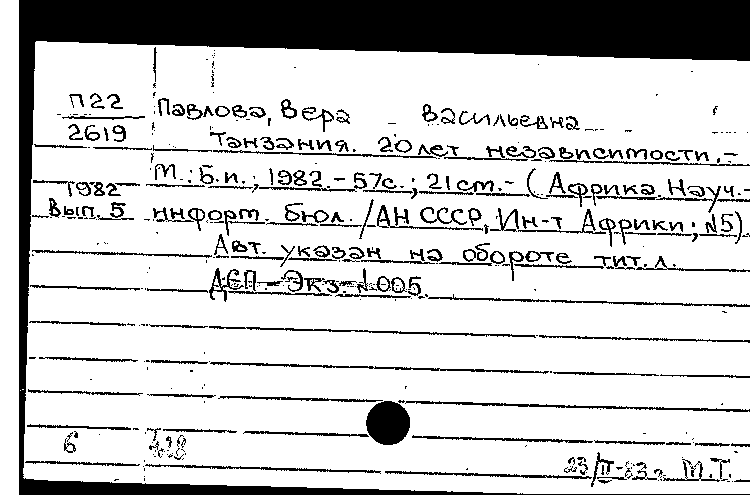 П22 Павлова, Вера Васильевна
2619 Танзания. 20 лет независимости. -
М.: Б.и., 1982. - 57с.; 21 см. - (Африка. Науч.-
1982
Вып. 5 информ. бюл. / АН СССР, Ин-т Африки; №5)
Авт. указан на обороте тит. л.
ДСП. - Экз. №005.
6 428
23/II-83г М.Т.